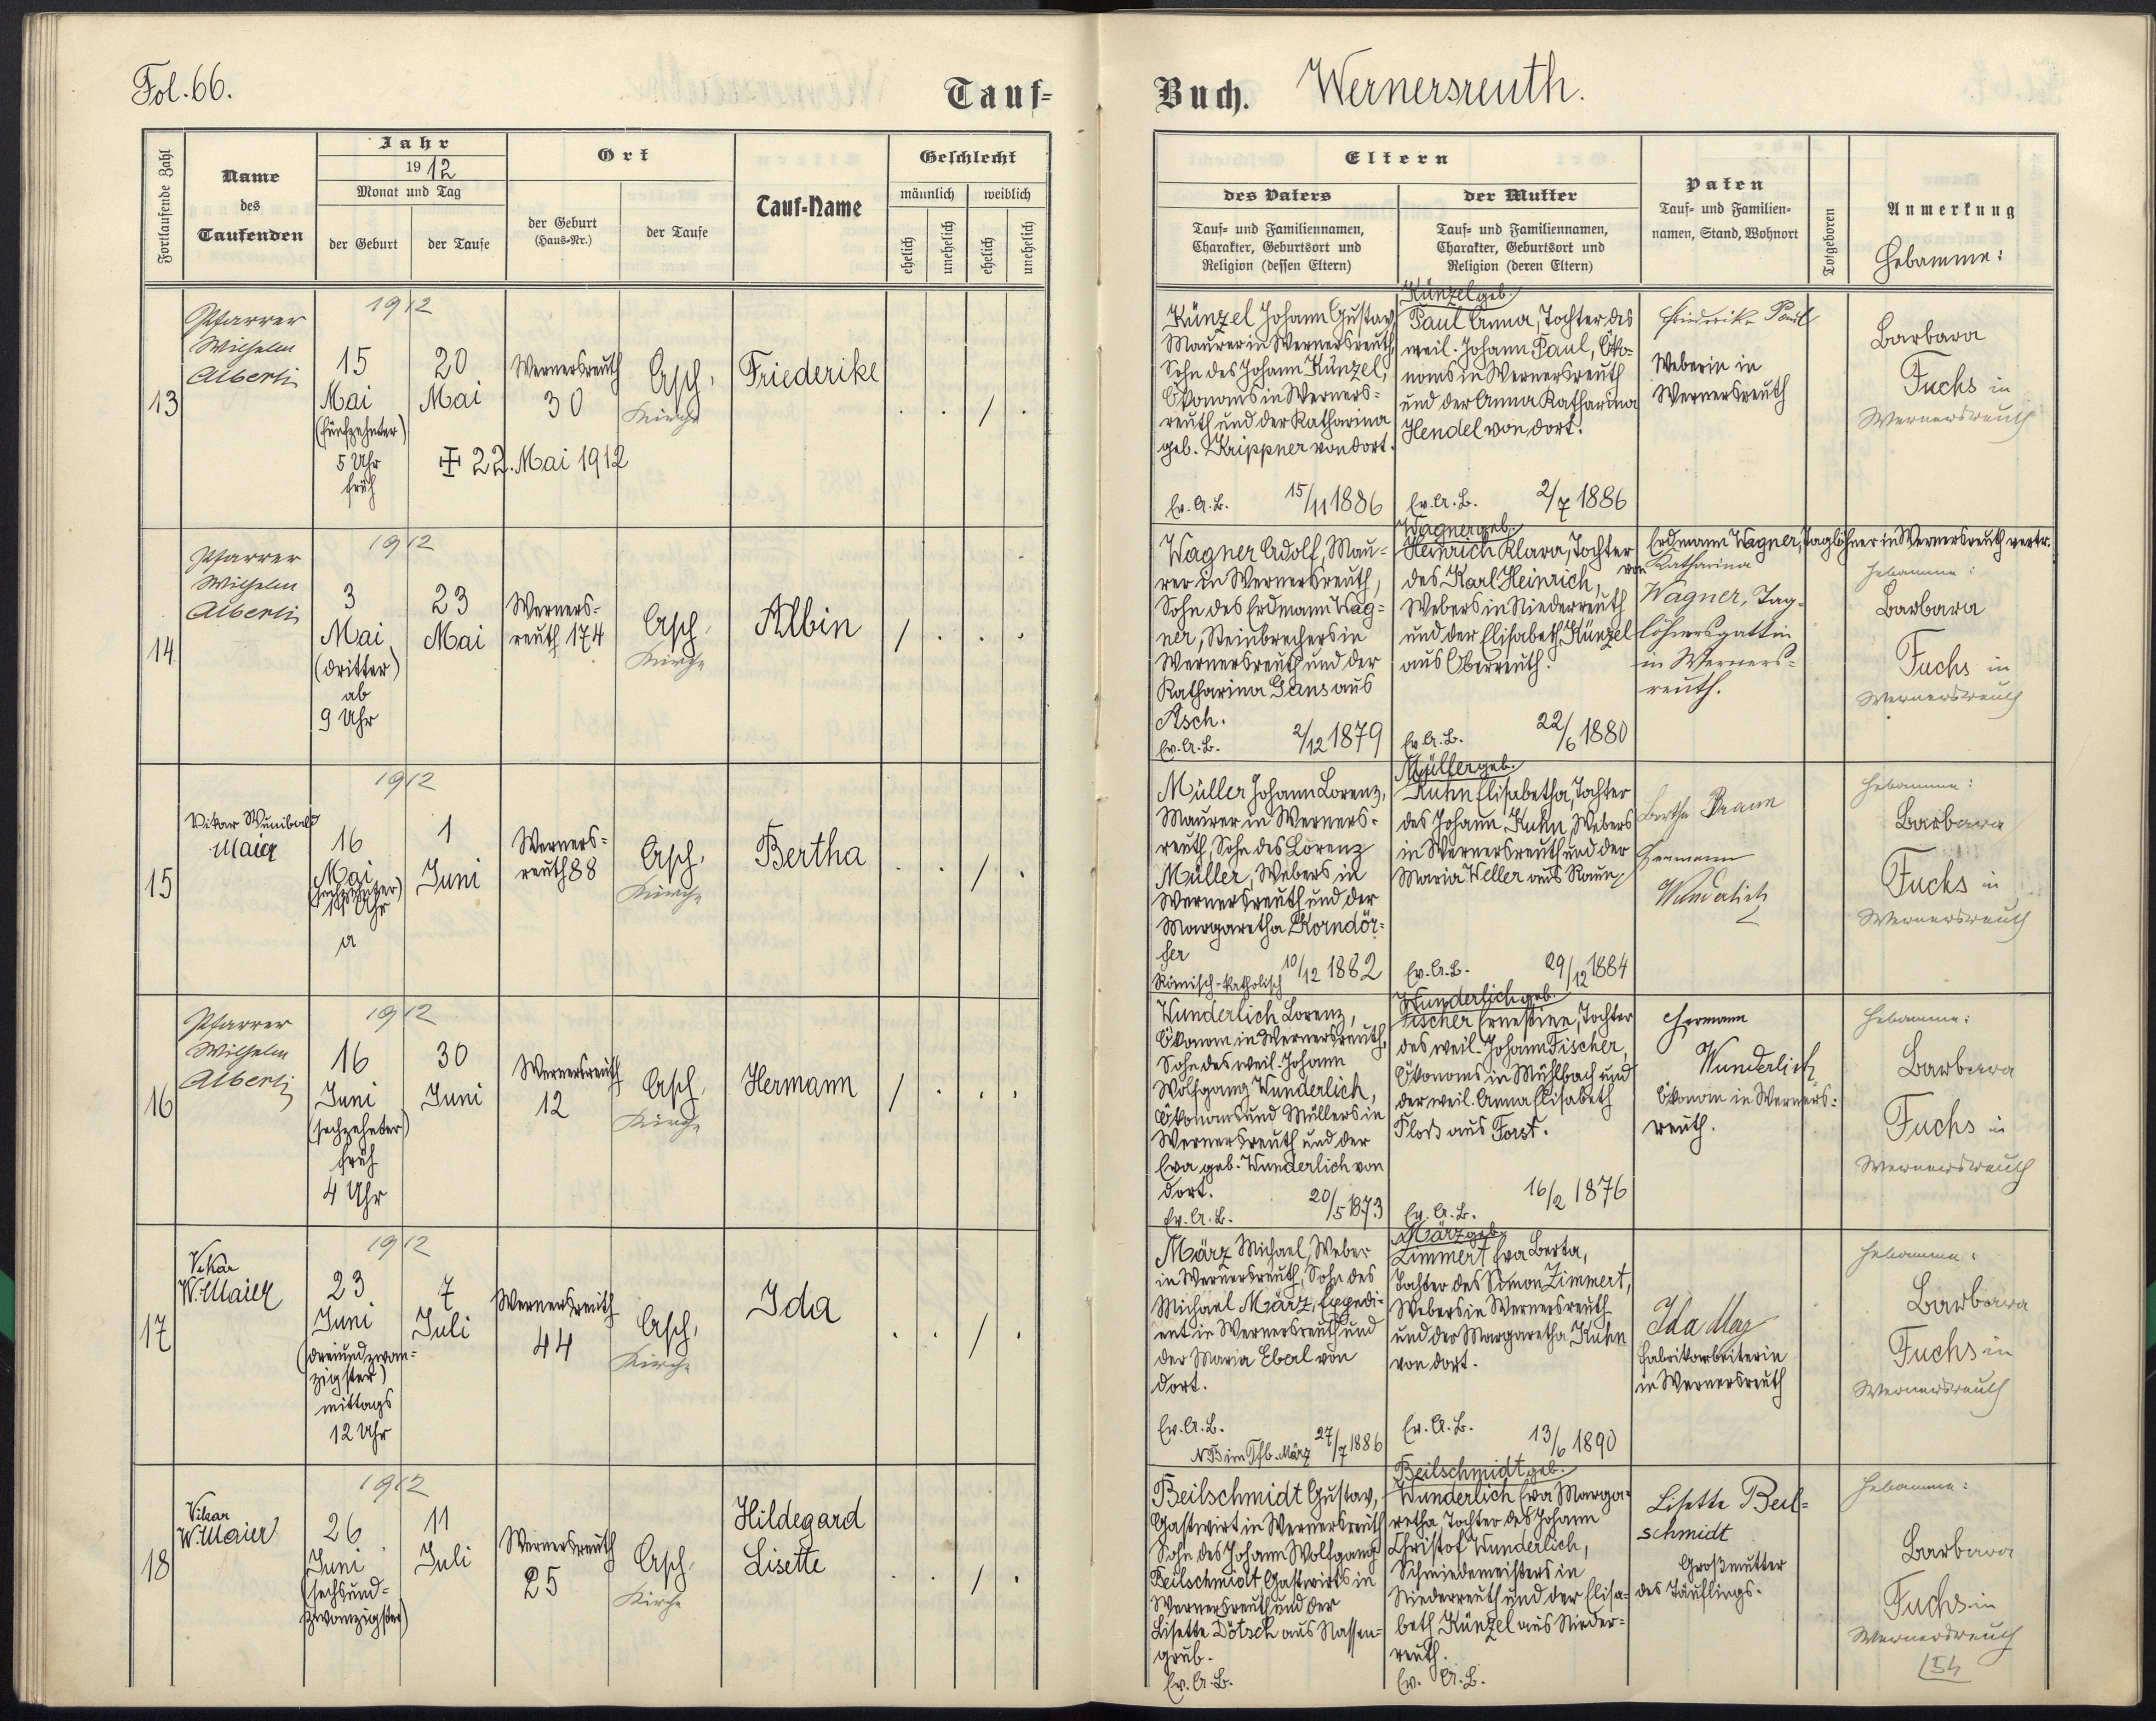 Fol. 66.
Tauf-
Buch.
Wernersreuth.
Fortlaufende Zahl
Name
des
Taufenden
Jahr
1912
Monat und Tag
der Geburt
der Taufe
Ort
der Geburt
(Haus-Nr.)
der Taufe
Tauf-Name
Geschlecht
männlich
weiblich
ehelich
unehelich
ehelich
unehelich
Eltern
des Vaters
Tauf- und Familiennamen,
Charakter, Geburtsort und
Religion (dessen Eltern)
der Mutter
Tauf- und Familiennamen,
Charakter, Geburtsort und
Religion (deren Eltern)
Paten
Tauf- und Familien-
namen, Stand, Wohnort
Totgeboren
Anmerkung
Hebamme:
13
Pfarrer
Wilhelm
Alberti
1912
15
Mai
(fünfzehnter)
5 Uhr
früh
20
Mai
22. Mai 1912
Wernersreuth
30
Asch,
Kirche
Friederike
/
Künzel Johann Gustav,
Maurer in Wernersreuth,
Sohn des Johann Künzel,
Ökonoms in Werners-
reuth und der Katharina
geb. Krippner von dort.
Ev. A. B. 15/11 1886
Künzel geb.
Paul Anna, Tochter des
weil. Johann Paul, Öko-
noms in Wernersreuth
und der Anna Katharina
Hendel von dort.
Ev. A. B. 2/7 1886
Friederike Paul
Weberin in
Wernersreuth
Barbara
Fuchs in
Wernersreuth
14
Pfarrer
Wilhelm
Alberti
1912
3
Mai
(dritter)
ab
9 Uhr
23
Mai
Werners-
reuth 174
Asch,
Kirche
Albin
/
Wagner Adolf, Mau-
rer in Wernersreuth,
Sohn des Erdmann Wag-
ner, Steinbrechers in
Wernersreuth und der
Katharina Gans aus
Asch.
Ev. A. B. 2/12 1879
Wagner geb.
Heinrich Klara, Tochter
des Karl Heinrich,
Webers in Niederreuth
und der Elisabeth Künzel
aus Oberreuth.
Ev. A. B. 22/6 1880
Erdmann Wagner, Taglöhner in Wernersreuth vertr.
von Katharina
Wagner, Tag-
löhnersgattin
in Werners-
reuth.
Hebamme:
Barbara
Fuchs in
Wernersreuth
15
Vikar Wunibald
Maier
1912
16
Mai
(sechzehnter)
11 Uhr
a
1
Juni
Werners-
reuth 88
Asch,
Kirche
Bertha
/
Müller Johann Lorenz,
Maurer in Werners-
reuth, Sohn des Lorenz
Müller, Webers in
Wernersreuth und der
Margaretha Korndör-
fer
Römisch-katholisch 10/12 1882
Müller geb.
Kuhn Elisabetha, Tochter
des Johann Kuhn, Webers
in Wernersreuth und der
Maria Weller aus Raun
Ev. A. B. 29/12 1884
Bertha Braun
Hermann
Wunderlich
Hebamme:
Barbara
Fuchs in
Wernersreuth
16
Pfarrer
Wilhelm
Alberti
1912
16
Juni
(sechzehnter)
früh
4 Uhr
30
Juni
Wernersreuth
12
Asch,
Kirche
Hermann
/
Wunderlich Lorenz,
Ökonom in Wernersreuth,
Sohn des weil. Johann
Wolfgang Wunderlich,
Ökonoms und Müllers in
Wernersreuth und der
Eva geb. Wunderlich von
dort.
Ev. A. B. 20/5 1873
Wunderlich geb.
Fischer Ernestine, Tochter
des weil. Johann Fischer,
Ökonoms in Mühlbach und
der weil. Anna Elisabeth
Floß aus Forst.
Ev. A. B. 16/2 1876
Hermann
Wunderlich
Ökonom in Werners-
reuth.
Hebamme:
Barbara
Fuchs in
Wernersreuth
17
Vikar
W. Maier
1912
23
Juni
(dreiundzwan-
zigster)
mittags
12 Uhr
7
Juli
Wernersreuth
44
Asch,
Kirche
Ida
/
März Michael, Weber
in Wernersreuth, Sohn des
Michael März, Expedi-
ent in Wernersreuth und
der Maria Eberl von
dort.
Ev. A. B.
NB im Tfb. März 27/7 1886
März geb.
Zimmert Eva Berta,
Tochter des Simon Zimmert,
Webers in Wernersreuth
und der Margaretha Kuhn
von dort.
Ev. A. B. 13/6 1890
Ida
Fabrikarbeiterin
in Wernersreuth
Hebamme:
Barbara
Fuchs in
Wernersreuth
18
Vikar
W. Maier
1912
26
Juni
(sechsund-
zwanzigster)
11
Juli
Wernersreuth
25
Asch,
Kirche
Hildegard
Lisette
/
Beilschmidt Gustav,
Gastwirt in Wernersreuth
Sohn des Johann Wolfgang
Beilschmidt, Gastwirts in
Wernersreuth und der
Lisette Dötsch aus Nassen-
grub.
Ev. A. B.
Beilschmidt geb.
Wunderlich Eva Marga-
retha, Tochter des Johann
Christof Wunderlich,
Schmiedemeisters in
Niederreuth und der Elisa-
beth Künzel aus Nieder-
reuth.
Ev. A. B.
Lisette Beil-
schmidt
Großmutter
des Täuflings.
Hebamme:
Barbara
Fuchs in
Wernersreuth